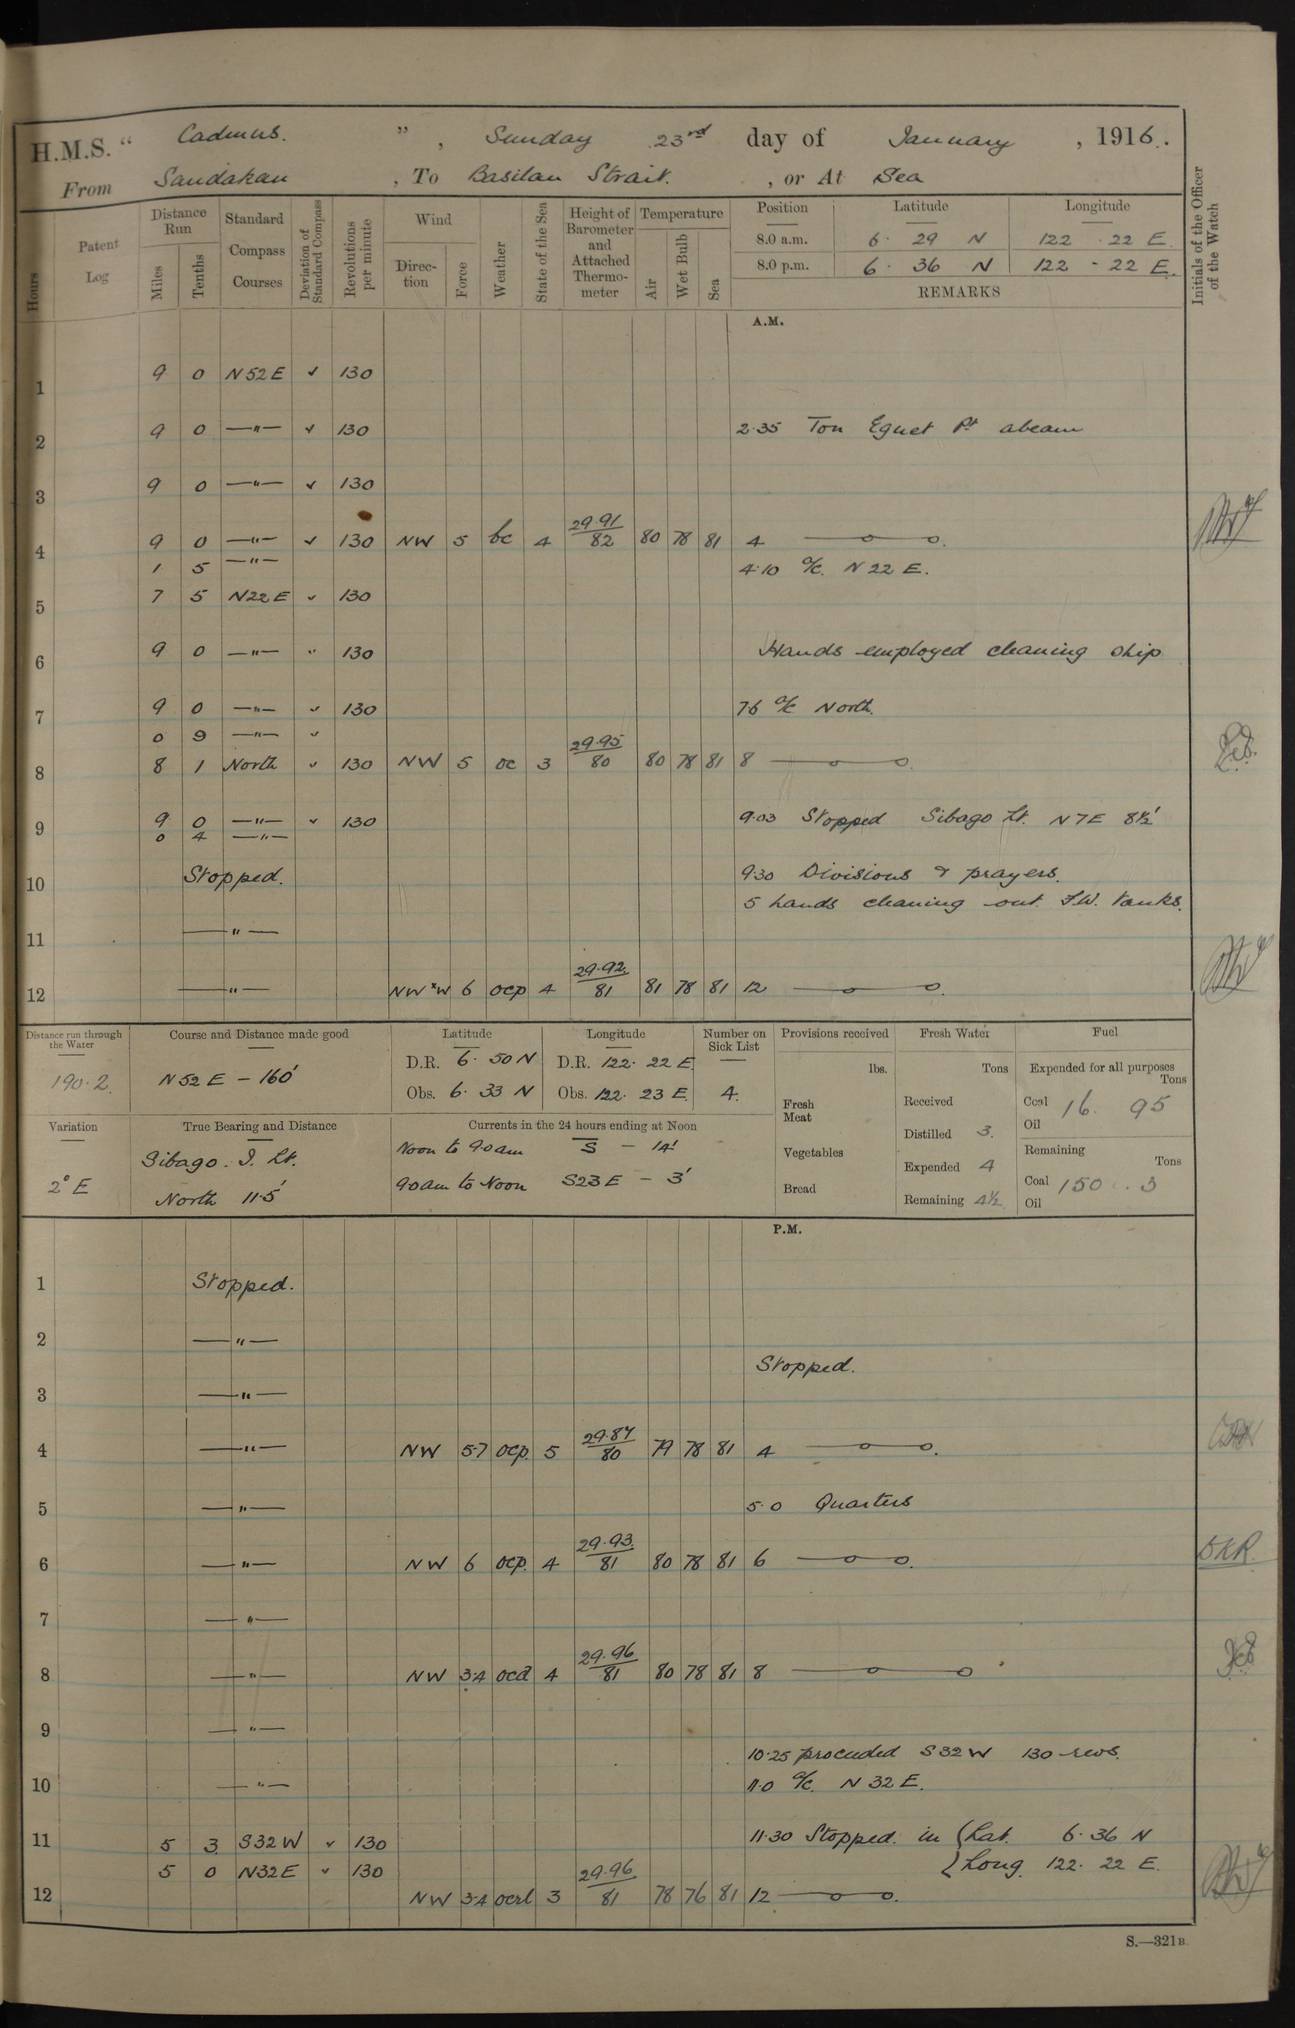 H.M.S. " Cadmus. ", Sunday 23rd day of January, 1916.
From Sandakan, To Basilan Strait., or At Sea
Hours
Patent Log
Distance Run
Miles
Tenths
Standard Compass Courses
Deviation of Standard Compass
Revolutions per minute
Wind
Direction
Force
Weather
State of the Sea
Height of Barometer and Attached Thermometer
Temperature
Air
Wet Bulb
Sea
Position Latitude Longitude
8.0 a.m. 6. 29 N 122. 22 E
8.0 p.m. 6. 36 N 122. 22 E.
REMARKS
Initials of the Officer of the Watch
A.M.
1 9 0 N52E ✓ 130
2 9 0 —"— ✓ 130 2.35 Ton Eguet Pt abeam
3 9 0 —"— ✓ 130
4 9 0 —"— ✓ 130 NW 5 bc 4 29.91/82 80 78 81 4 —o—o.
1 5 —"— 4.10 a/c. N22E.
5 7 5 N22E ✓ 130
6 9 0 —"— " 130 Hands employed cleaning ship
7 9 0 —"— ✓ 130 7.6 a/c North.
0 9 —"— ✓
8 8 1 North ✓ 130 NW 5 oc 3 29.95/80 80 78 81 8 —o—o.
9 9 0 —"— ✓ 130 9.03 Stopped Sibago Lt. N7E 8½'
0 4 —"—
10 Stopped. 9.30 Divisions & prayers.
5 hands cleaning out F.W. tanks.
11 —"—
12 —"— NW x W 6 ocp 4 29.92/81 81 78 81 12 —o—o.
Distance run through the Water
190.2
Course and Distance made good
N52E – 160'
Latitude
D.R. 6. 50 N
Obs. 6. 33 N
Longitude
D.R. 122. 22 E.
Obs. 122. 23 E.
Number on Sick List
4.
Provisions received
lbs.
Fresh Meat
Vegetables
Bread
Fresh Water
Tons
Received
Distilled 3.
Expended 4
Remaining 4½
Fuel
Expended for all purposes
Tons
Coal 16. 95
Oil
Remaining
Tons
Coal 150. 3
Oil
Variation
2° E
True Bearing and Distance
Sibago. I. Lt.
North 11.5'
Currents in the 24 hours ending at Noon
Noon to 9.0am S – 14'
9.0am to Noon S23E – 3'
P.M.
1 Stopped.
2 —"—
Stopped.
3 —"—
4 —"— NW 5.7 ocp. 5 29.87/80 79 78 81 4 —o—o.
5 —"— 5.0 Quarters
6 —"— NW 6 ocp. 4 29.93/81 80 78 81 6 —o—o. DKR.
7 —"—
8 —"— NW 3.4 ocd 4 29.96/81 80 78 81 8 —o—o
9 —"—
10.25 proceeded S32W 130 revs.
10 —"— 11.0 a/c. N32E.
11 5 3 S32W ✓ 130 11.30 Stopped. in {Lat. 6.36 N
5 0 N32E ✓ 130 {Long. 122. 22 E.
12 NW 3.4 ocrl 3 29.96/81 78 76 81 12 —o—o.
S.—321B.